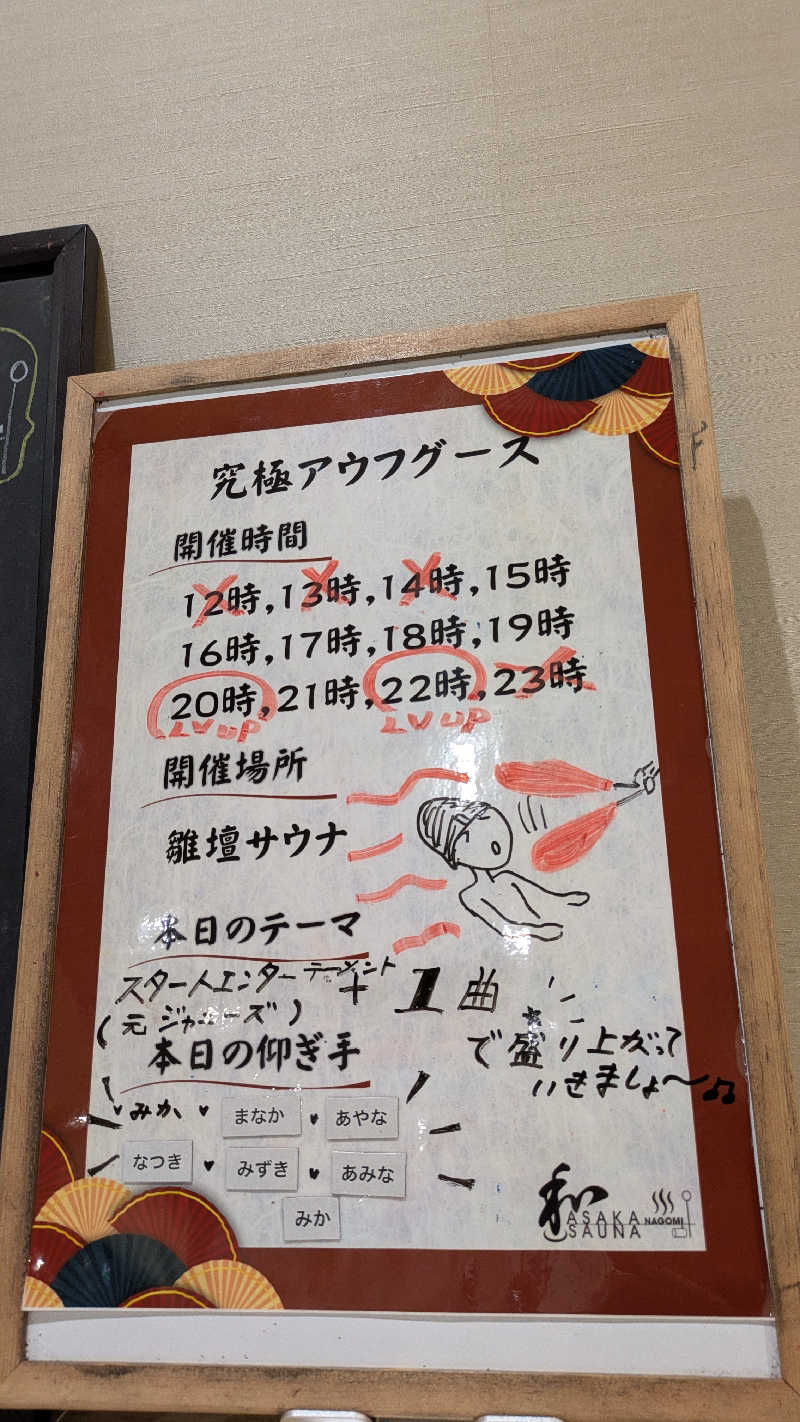 究極アウフグース
開催時間
12時,13時,14時,15時
16時,17時,18時,19時
20時,21時,22時,23時
LV UP LV UP
開催場所
雛壇サウナ
本日のテーマ
スター人エンターテーメント
(元ジャニーズ)
+ 1曲
で盛り上がって
いきましょ〜♫
本日の仰ぎ手
♥みか♥ まなか ♥ あやな
なつき ♥ みずき ♥ あみな
みか
和 ASAKA SAUNA NAGOMI